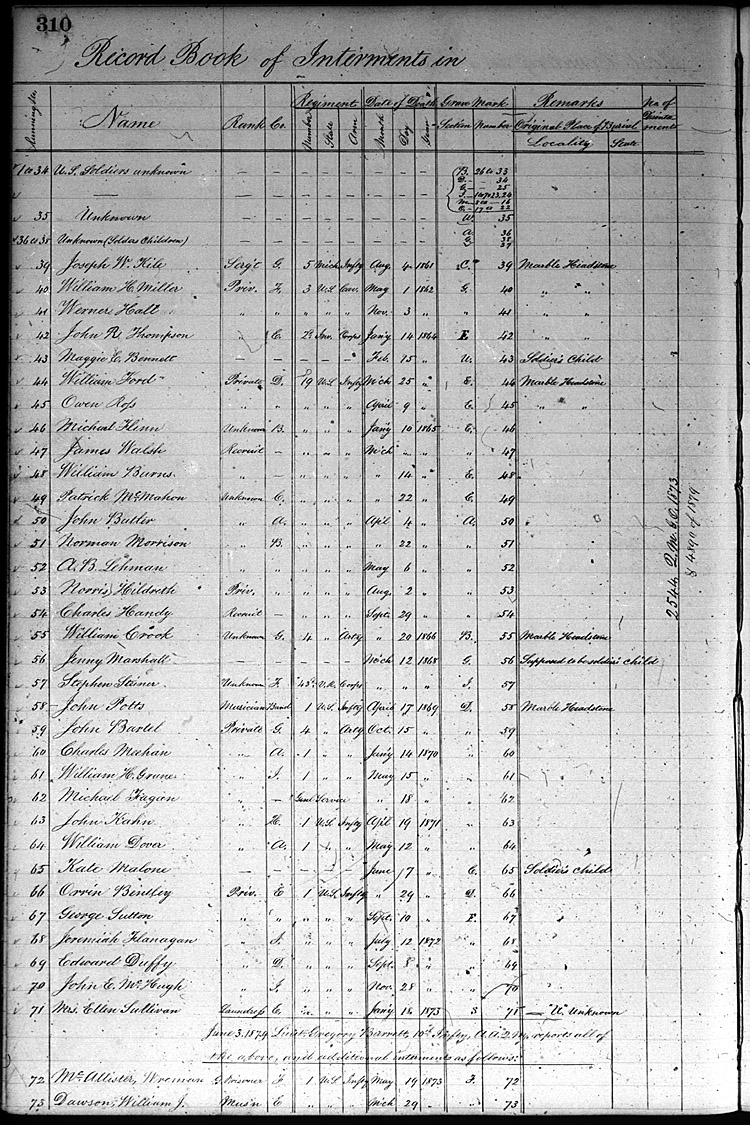 310
Record Book of Interments in
Running No. Name Rank Co. Regiment Date of Death Grave Mark Remarks No. of
Number State Arm Month Day Year Section Number Original Place of Burial
Locality State
1 to 34 U.S. Soldiers unknown — — — — — — — — B. 26 to 33
D — 34
G — 25
17 to 22
35 Unknown — — — — — — — — W. 35
36 to 38 Unknown (Solders Children) — — — — — — — — A. 36
G. 37
39 Joseph W. Kile Serg't G. 5 Mich Infty Aug. 4 1861 C. 39 Marble Headstone
40 William H. Miller Priv. F. 3 U.S. Cav. May 1 1862 G. 40 " "
41 Werner Hall " " " " " Nov. 3 " " 41 " "
42 John R. Thompson " C. 2d Inv. Corps Jan'y 14 1864 E 42 " "
43 Maggie E. Bennett — — — — — Feb. 15 " U. 43 Soldier's Child
44 William Ford Private D. 19 U.S. Infty Mch 25 " E. 44 Marble Headstone
45 Owen Ross " " " " " April 9 " E. 45 " "
46 Michael Flinn Unknown B. " " " Jan'y 10 1865 E. 46
47 James Walsh Recruit — " " " Mch " " " 47
48 William Burns " — " " " " 14 " E. 48
49 Patrick McMahon Unknown C. " " " " 22 " E. 49
50 John Butler " A. " " " April 4 " A. 50
51 Norman Morrison " B. " " " " 22 " " 51
52 A. B. Lehman " " " " " May 6 " " 52
53 Norris Hildreth Priv. " " " " Aug. 2 " " 53
54 Charles Handy Recruit — " " " Sept. 29 " " 54
55 William Crook Unknown G. 4 " Arty " 20 1866 B. 55 Marble Headstone
56 Jenny Marshall — — — — — Mch 12 1868 G. 56 Supposed to be soldier's child
57 Stephen Stiner Unknown F. 43d V.R. Corps " " " J. 57
58 John Potts Musician Band 1 U.S. Infty April 17 1869 D. 58 Marble Headstone
59 John Bartel Private G. 4 " Arty Oct. 15 " " 59
60 Charles Meehan " A. 1 " " Jan'y 14 1870 " 60
61 William H. Graves " I. 1 " " May 15 " " 61
62 Michael Fagan " — Genl Service " 18 " " 62
63 John Kahn " H. 1 U.S. Infty April 19 1871 " 63
64 William Dover " A. 1 " " May 12 " " 64
65 Kate Malone — — — — — June 17 " C. 65 Soldier's Child
66 Orrin Bentley Priv. E 1 U.S. Infty " 29 " D. 66
67 George Sutton " " " " " Sept. 10 " E. 67
68 Jeremiah Flanagan " I. " " " July 12 1872 " 68
69 Edward Duffy " D. " " " Sept. 8 " " 69
70 John E. McHugh " I. " " " Nov. 28 " " 70
71 Mrs. Ellen Sullivan Laundress C. " " " Jan'y 18 1873 S 71 — U. Unknown
June 3. 1879 Lieut. Gregory Barrett, 10th Infty, A.A.Q.M., reports all of
the above, and additional interments as follows:
72 McAllister, Wreman G. Prisoner F 1 U.S. Infty May 19 1873 F. 72
73 Dawson, William J. Mus'n E " " " Mch 29 " " 73
2544 Q.M.G.O. 1873
& 4890 of 1879